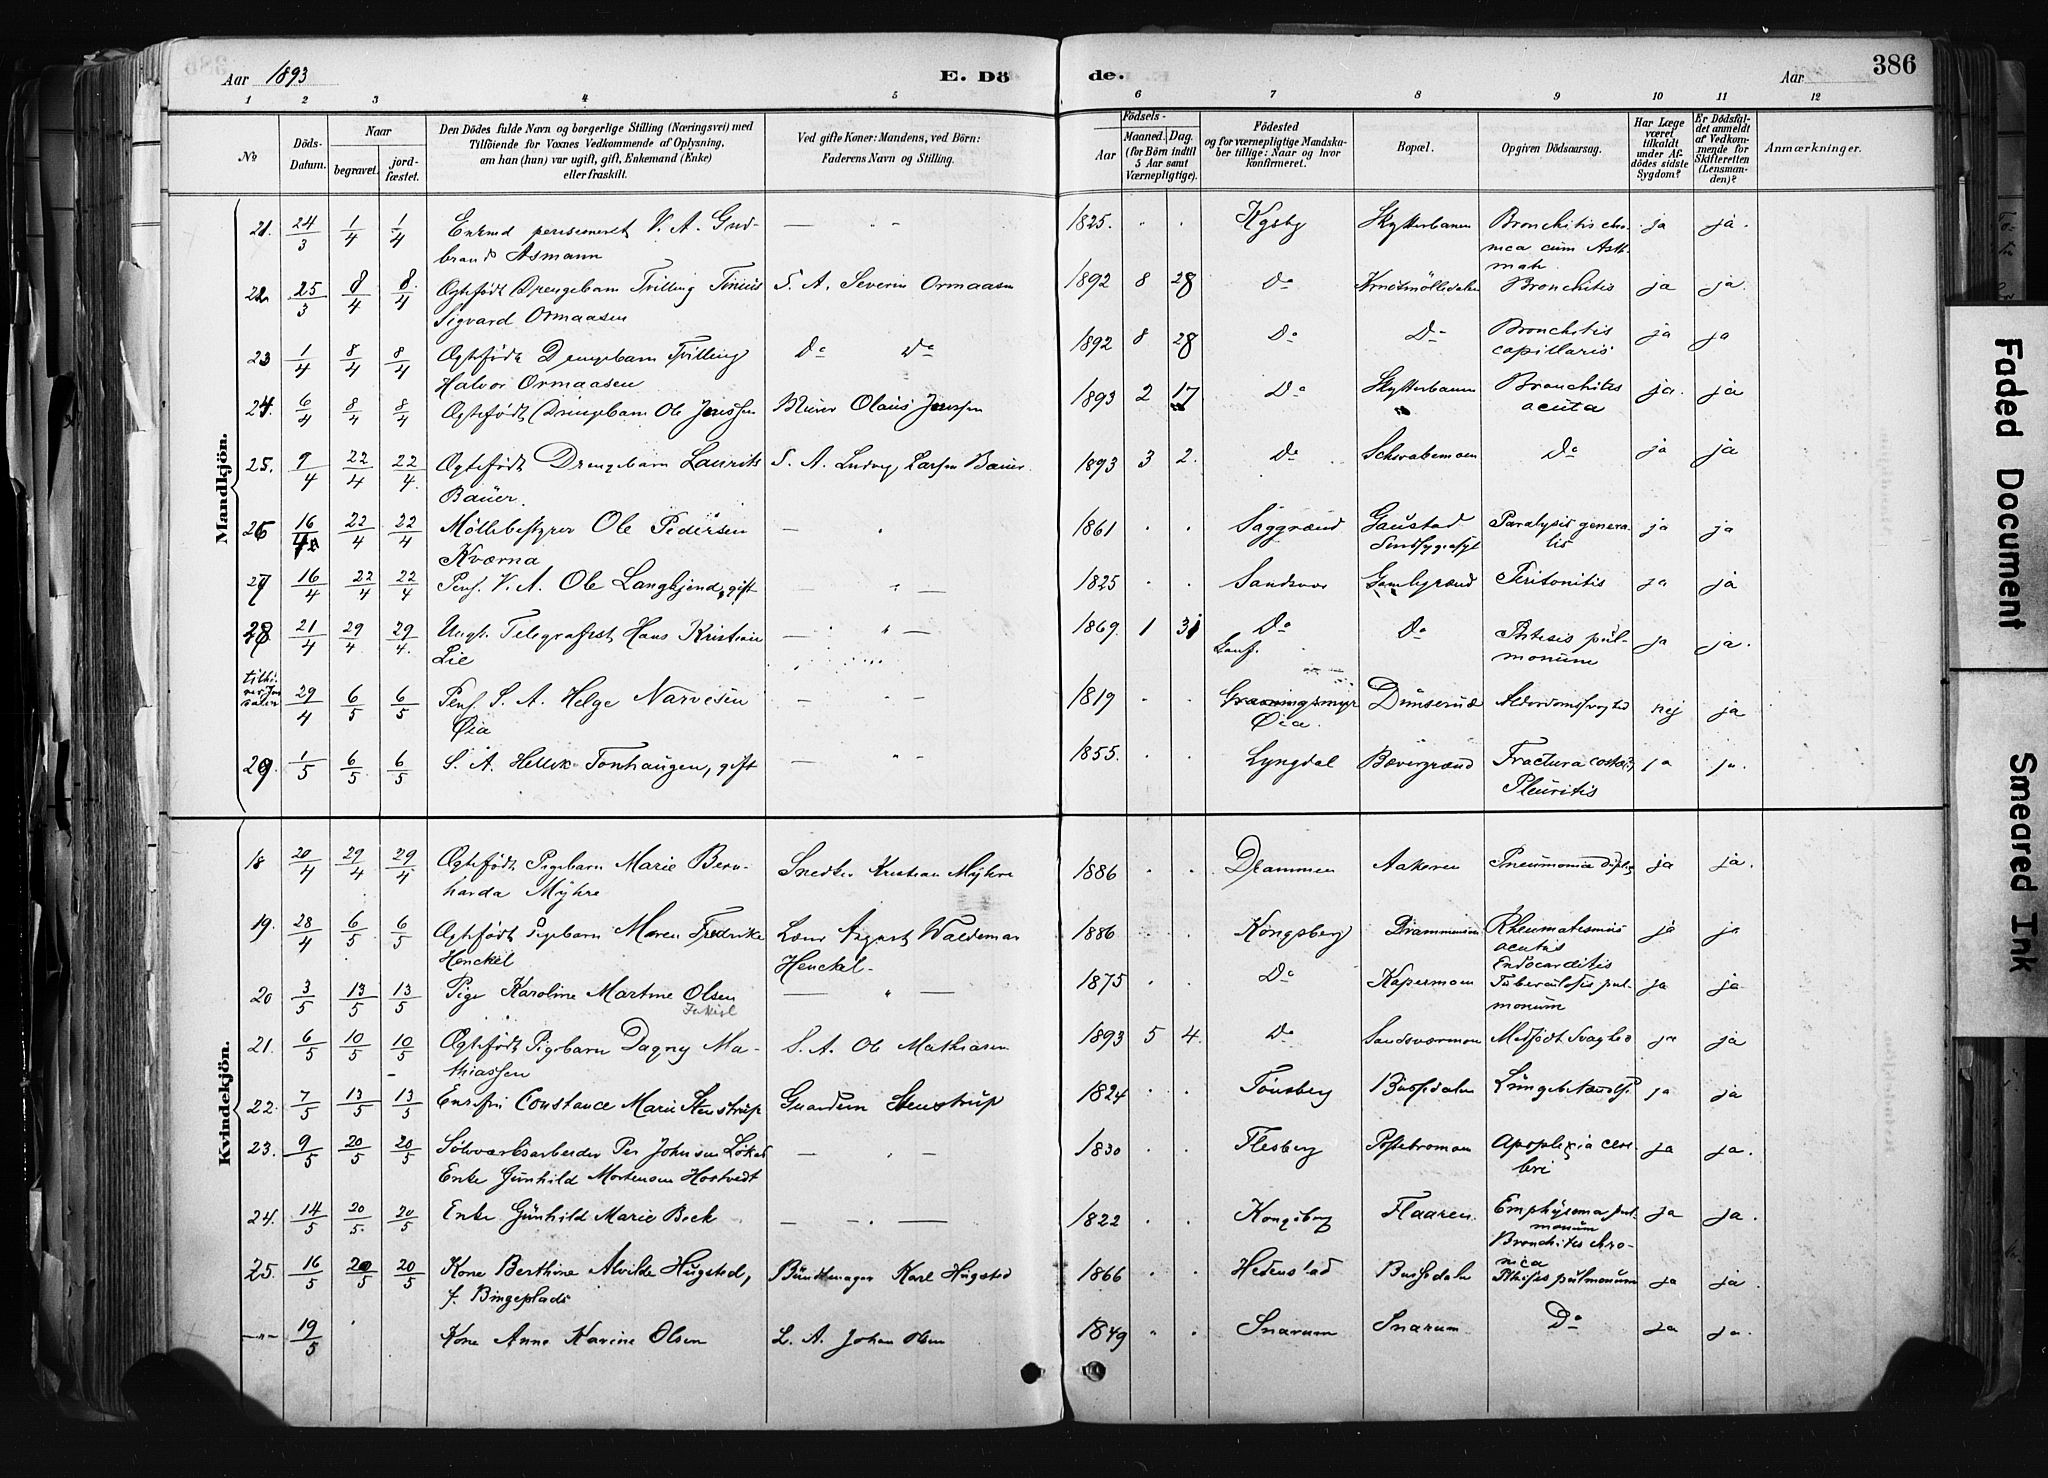 Aar 1893 E. Dö
de. Aar 386
1 2 3 4 5 6 7 8 9 10 11 12
No
Döds-Datum.
Naar begravet. jordfæstet.
Den Dödes fulde Navn og borgerlige Stilling (Næringsvei) med
Tilföiende for Voxnes Vedkommende af Oplysning,
om han (hun) var ugift, gift, Enkemand (Enke)
eller fraskilt.
Ved gifte Koner: Mandens, ved Börn:
Faderens Navn og Stilling.
Födsels-
Aar Maaned. Dag.
(for Börn indtil
5 Aar samt
Værnepligtige).
Födested
og for værnepligtige Mandska-
ber tillige: Naar og hvor
konfirmeret.
Bopæl.
Opgiven Dödsaarsag.
Har Læge
været
tilkaldt
under Af-
dödes sidste
Sygdom?
Er Dödsfal-
det anmeldt
af Vedkom-
mende for
Skifteretten
(Lensman-
den)?
Anmærkninger.
Mandkjön.
21. 24/3 1/4 1/4 Enkmd pensioneret V. A. Gud- — " - 1825. Kgsbg Skytterbanen Bronchitis chro- ja ja.
brand Asmann nica cum Asth-
mate
22 25/3 8/4 8/4 Ogtefödt Drengebarn Tvilling Tinius S. A. Severin Ormaasen 1892 8 28 Do Bronchitis ja ja.
Sigvard Ormaasen
23 1/4 8/4 8/4 Ogtefödt Drengebarn Tvilling Do Do 1892 8 28 Do Do Bronchitis ja ja
Halvor Ormaasen capillaris
24 6/4 8/4 8/4 Ogtefödt Drengebarn Ole Jenssen Murer Olaus Jenssen 1893 2 17 Do Skytterbanen Bronchitis ja. ja
acuta
25. 9/4 22/4 22/4. Ogtefödt Drengebarn Laurits S. A. Ludvig Larsen Bauer 1893 3 2. Do Schwabemoen Do ja ja
Bauer.
26 16/4 22/4 22/4 Möllebestyrer Ole Pedersen — " 1861 Saggrænd Gaustad Paralysis genera- ja ja
Kværna Sindssygeasyl lis
27 16/4 22/4 22/4 Pens. V. A. Ole Langkjend, gift — " — 1825 Sandsvær Gamlegrænd Peritonitis ja ja
28 21/4 29/4 29/4. Ungk. Telegrafist Hans Kristian — " — 1869. 1 31 Do Do Phtisis pul- ja ja.
Lie monum
29/4 6/5 6/5 Pens. S. A. Helge Narvesen — " — 1819 Dunserud Alderdomssvaghed nej ja
Øia Øia.
29. 1/5 6/5 6/5 S. A. Hellik Tonhaugen, gift — " - 1855. Lyngdal Bævergrænd Fractura costæ, ja ja.
Pleuritis
Kvindekjön.
18 20/4 29/4 29/4 Ogtefödt Pigebarn Marie Bern- Snedker Kristian Myhre 1886 Drammen Aakeren Pneumonia dupleg ja ja.
harda Myhre
19. 28/4 6/5 6/5 Ogtefödt Pigebarn Maren Fredrikke August Waldemar 1886 Kongsberg Rheumatismus ja ja
Henckel Henckel- acutus
Endocarditis
20 3/5 13/5 13/5 Pige Karoline Martine Olsen — " — 1875 Do Kapermoen Tuberculosis pul- ja ja
monum
21. 6/5 10/5 10/5 Ogtefödt Pigebarn Dagny Ma- S. A. Ole Mathiasen 1893 5 4. Do Sandsværmoen Medfödt Svaghed ja ja
thiassen
22. 7/5 13/5 13/5 Enkefru Constance Marie Stenstrup Guardein Stenstrup 1824 Tönsberg Bussedalen Lungebetændelse ja ja
23. 9/5 20/5 20/5 Sölvværksarbeider Per Johnsen Lökens — " — 1830 Flesberg Apoplexia cere- ja ja.
Enke Gunhild Mortensen Hostvedt bri
24. 14/5 20/5. 20/5 Enke Gunhild Marie Beck — — — 1822 Kongsberg Flaaren Emphysema pul- ja ja.
monum
Bronchitis chro-
nica
25. 16/5 20/5 20/5 Kone Berthine Alvilde Hugsted, Bundtmager Karl Hugsted 1866 Hedenstad Bussedalen Pthisis pulmonum ja ja.
f. Bingeplads
—"— 19/5 Kone Anne Karine Olsen L. A. Johan Olsen 1849 Snarum Snarum Do ja ja.
Faded Document
Smeared Ink